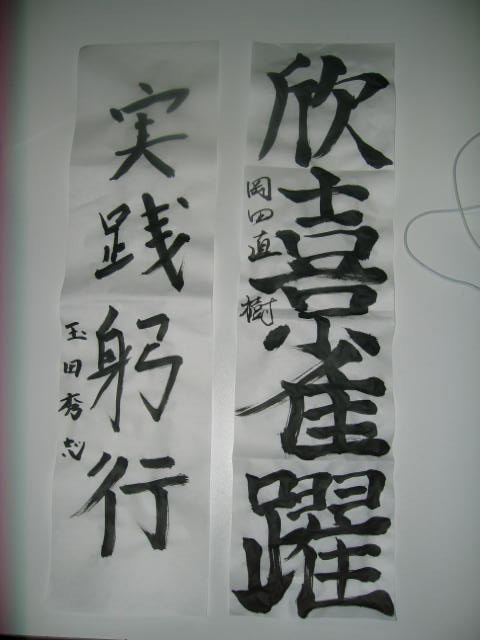 欣喜雀躍
岡田直樹
実践躬行
玉田秀志